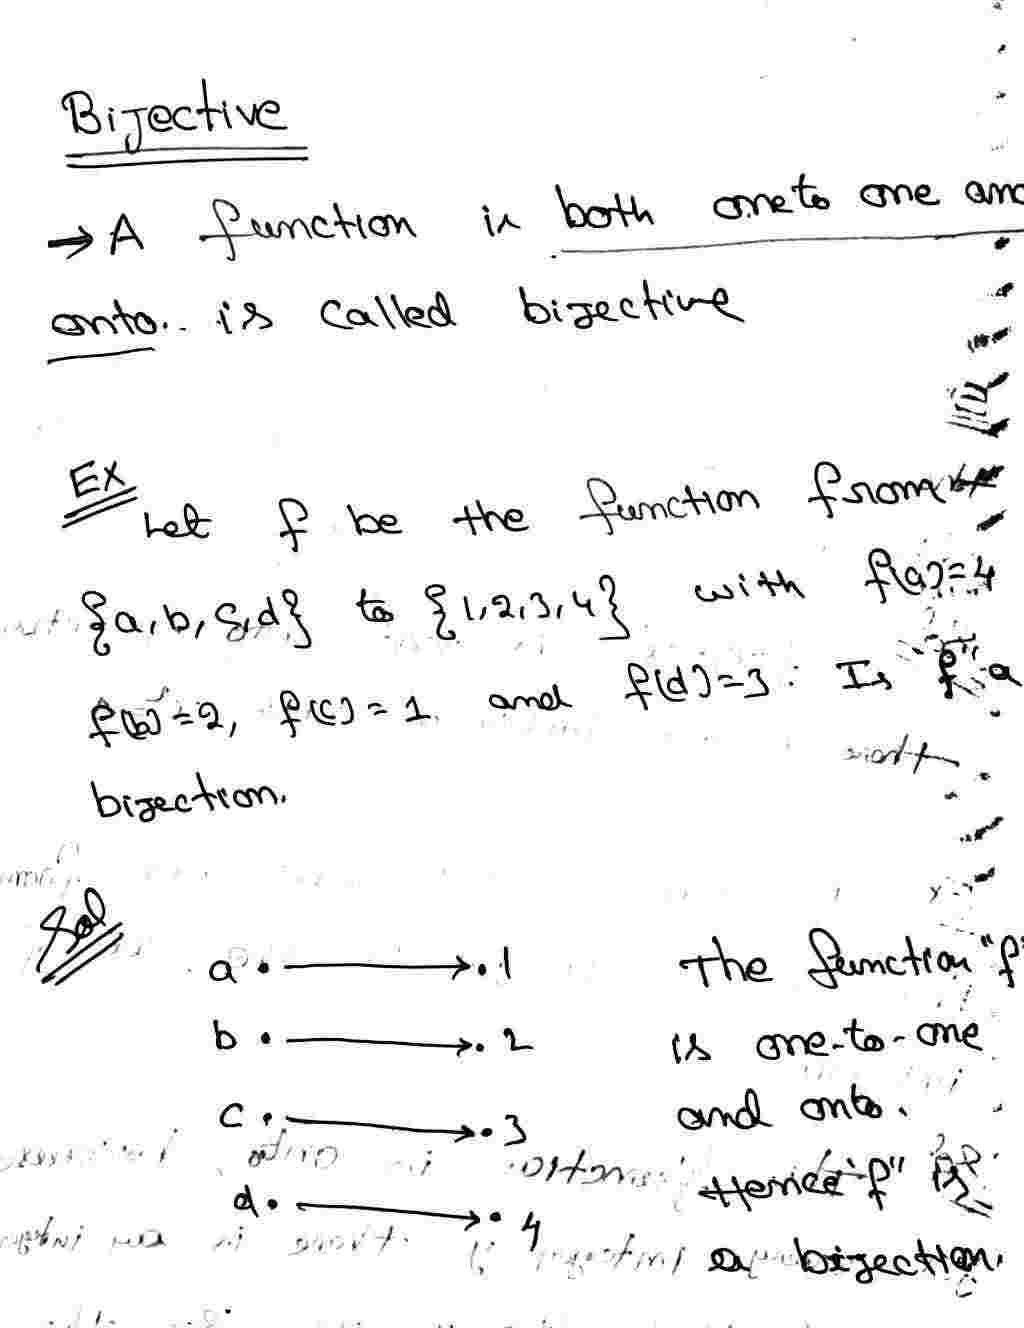 Bijective
→ A function is both one to one and
onto. is called bijective
Ex
Let f be the function from
{a, b, c, d} to {1, 2, 3, 4} with f(a)=4
f(b)=2, f(c)=1 and f(d)=3. Is f a
bijection.
Sol
a • → • 1 The function "f"
b • → • 2 is one-to-one
c • → • 3 and onto.
d • → • 4 Hence "f" is
a bijection.